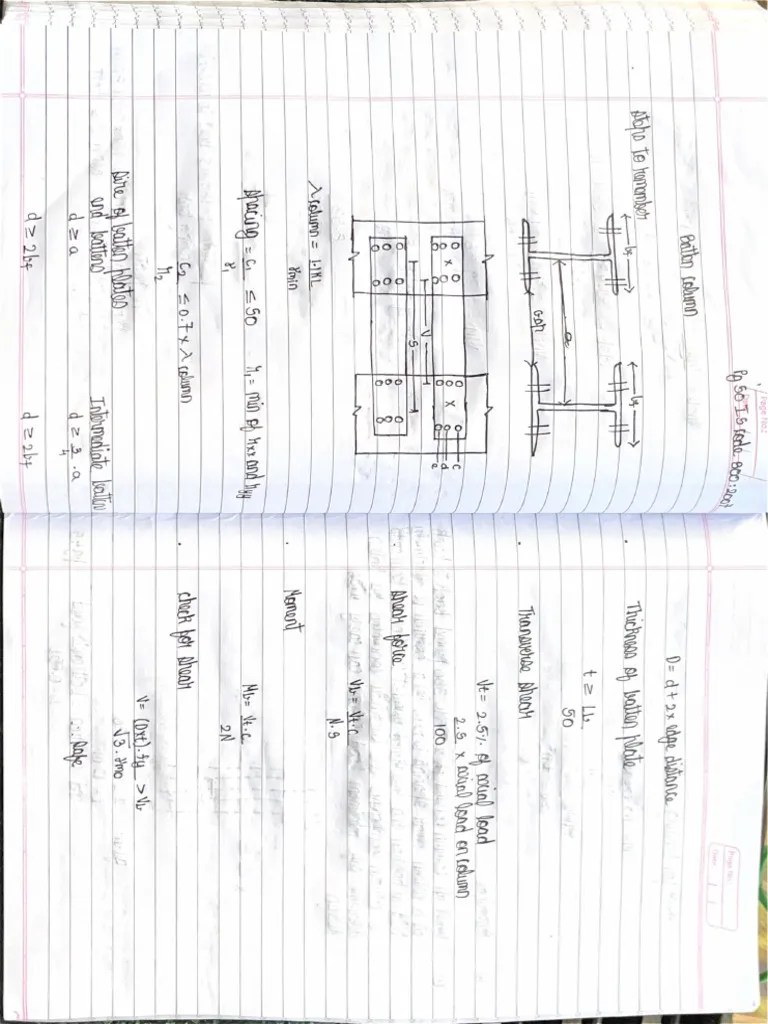 Pg 50 IS code 800:2007
Batten column
Steps to remember
bf
bf
a
GAP
V
S
c
d
e
λ column = 1.1KL
rmin
Spacing = C1 ≤ 50
r1
r1 = min of rxx and ryy
C1 ≤ 0.7 x λ column
r2
Size of batten plates
end battens
Intermediate batten
d ≥ a
d ≥ 3/4 . a
d ≥ 2bf
d ≥ 2bf
Page No.:
Date:
D = d + 2 x edge distance
Thickness of batten plate
t ≥ Lb
50
Transverse shear
Vt = 2.5% of axial load
2.5 x axial load on column
100
Shear force
Vb = Vt.C
N.S
Moment
Mb = Vt.C
2N
check for shear
V = (Dxt).fy > Vb
√3 . γmo
Safe